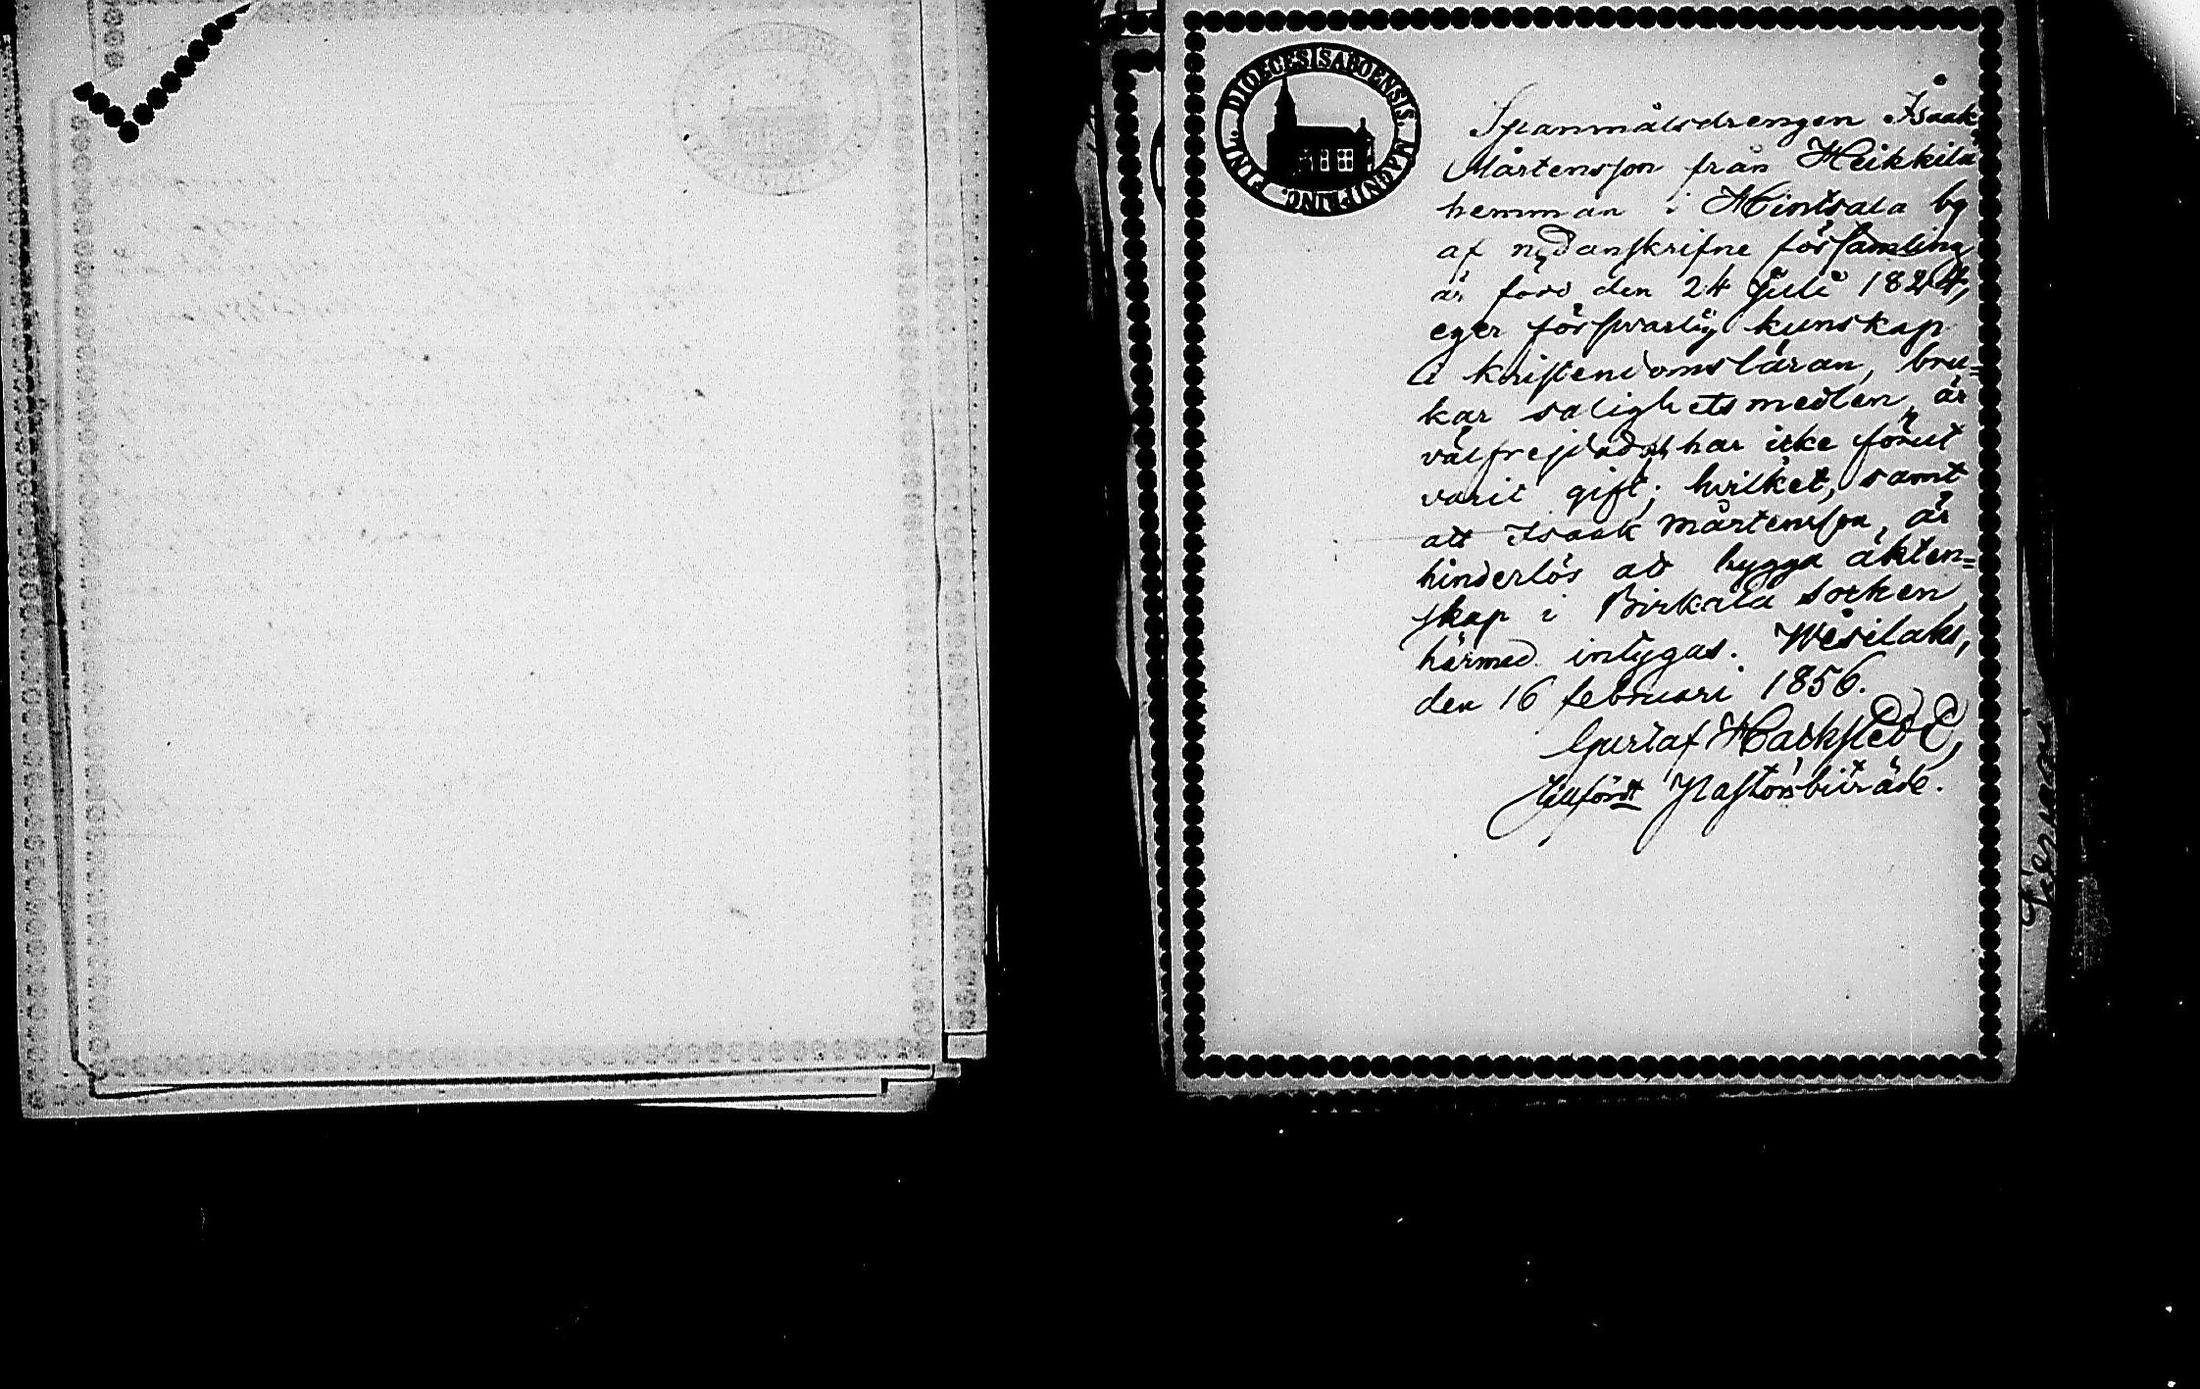 DIOECESIS ABOENSIS. MAGNI PRINC. FINL.
Spanmålsdrengen Isaak
Mårtensson från Heikkilä
hemman i Hintsala by
af nedanskrifne församling
är född den 24 Juli 1824,
eger försvarlig kunskap
i kristendomsläran, bru=
kar salighetsmedlen, är
välfrejdad, har icke förut
varit gift; hvilket, samt
att Isaak Mårtensson, är
hinderlös at bygga äkten=
skap i Birkala socken
härmed intygas. Wesilaks,
den 16 februari 1856.
Gustaf
Pastorsbiträde.